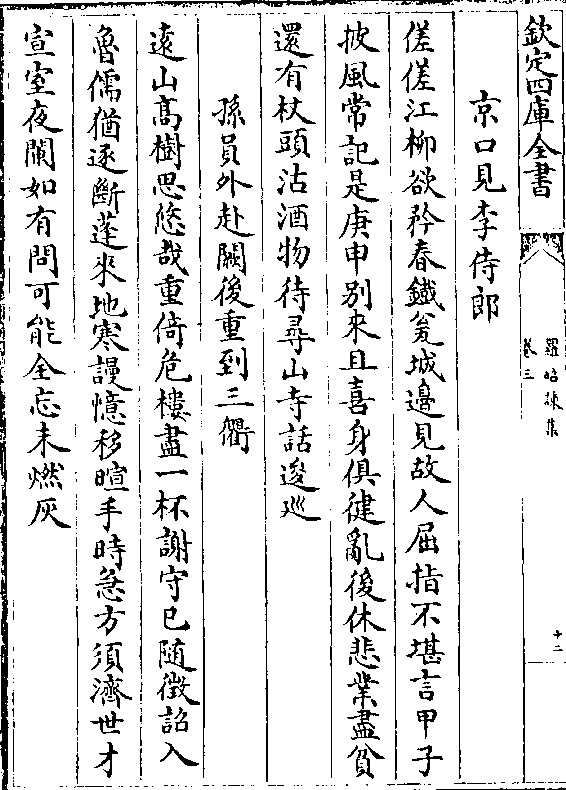 欽定四庫全書
羅昭諫集
卷三
十二
京口見李侍郎
傞傞江柳欲矜春鐵瓮城邊見故人屈指不堪言甲子
披風常記是庚申別來且喜身俱健亂後休悲業盡貧
還有杖頭沽酒物待尋山寺話逡巡
孫員外赴闕後重到三衢
遠山高樹思悠哉重倚危樓盡一杯謝守已隨徵詔入
魯儒猶逐斷蓬來地寒謾憶移暄手時急方須濟世才
宣室夜闌如有問可能全忘未燃灰